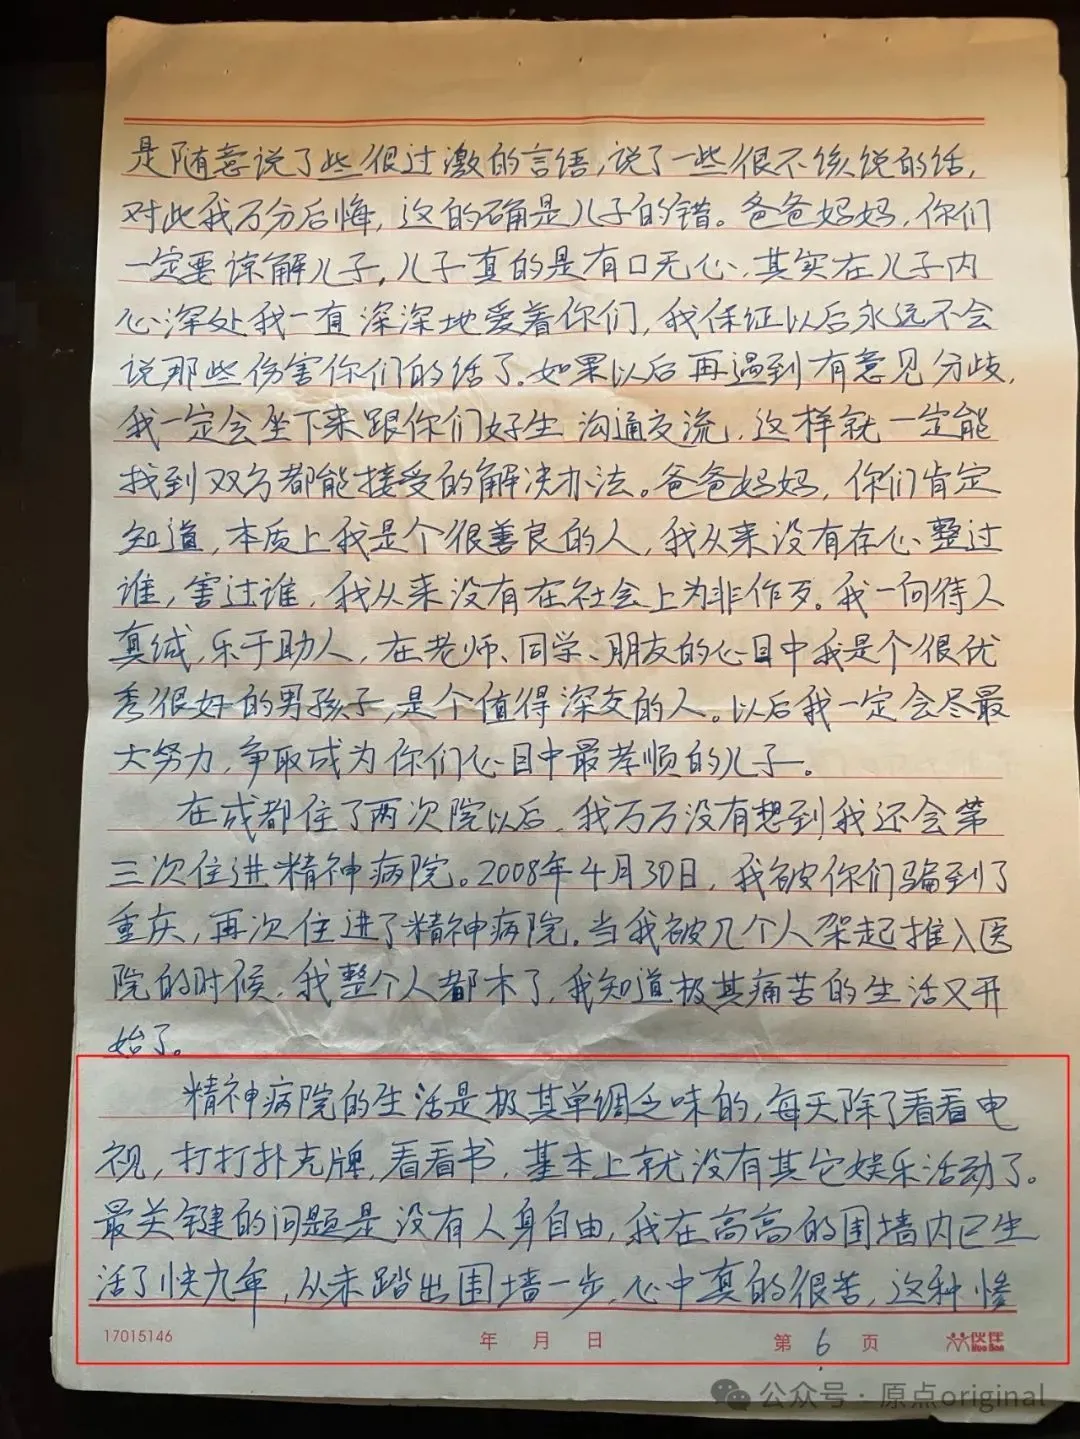 是随意说了些很过激的言语，说了一些很不该说的话，
对此我万分后悔，这的确是儿子的错。爸爸妈妈，你们
一定要谅解儿子，儿子真的是有口无心，其实在儿子内
心深处我一直深深地爱着你们，我保证以后永远不会
说那些伤害你们的话了。如果以后再遇到有意见分歧，
我一定会坐下来跟你们好生沟通交流，这样就一定能
找到双方都能接受的解决办法。爸爸妈妈，你们肯定
知道，本质上我是个很善良的人，我从来没有存心整过
谁，害过谁，我从来没有在社会上为非作歹。我一向待人
真诚，乐于助人，在老师、同学、朋友的心目中我是个很优
秀很好的男孩子，是个值得深交的人。以后我一定会尽最
大努力，争取成为你们心目中最孝顺的儿子。
在成都住了两次院以后，我万万没有想到我还会第
三次住进精神病院。2008年4月30日，我被你们骗到了
重庆，再次住进了精神病院。当我被几个人架起推入医
院的时候，我整个人都木了，我知道极其痛苦的生活又开
始了。
精神病院的生活是极其单调乏味的，每天除了看看电
视，打打扑克牌，看看书，基本上就没有其它娱乐活动了。
最关键的问题是没有人身自由，我在高高的围墙内已生
活了快九年，从未踏出围墙一步，心中真的很苦，这种惨
17015146 年 月 日 第 6 页 伙伴 Huo Ban
公众号·原点original